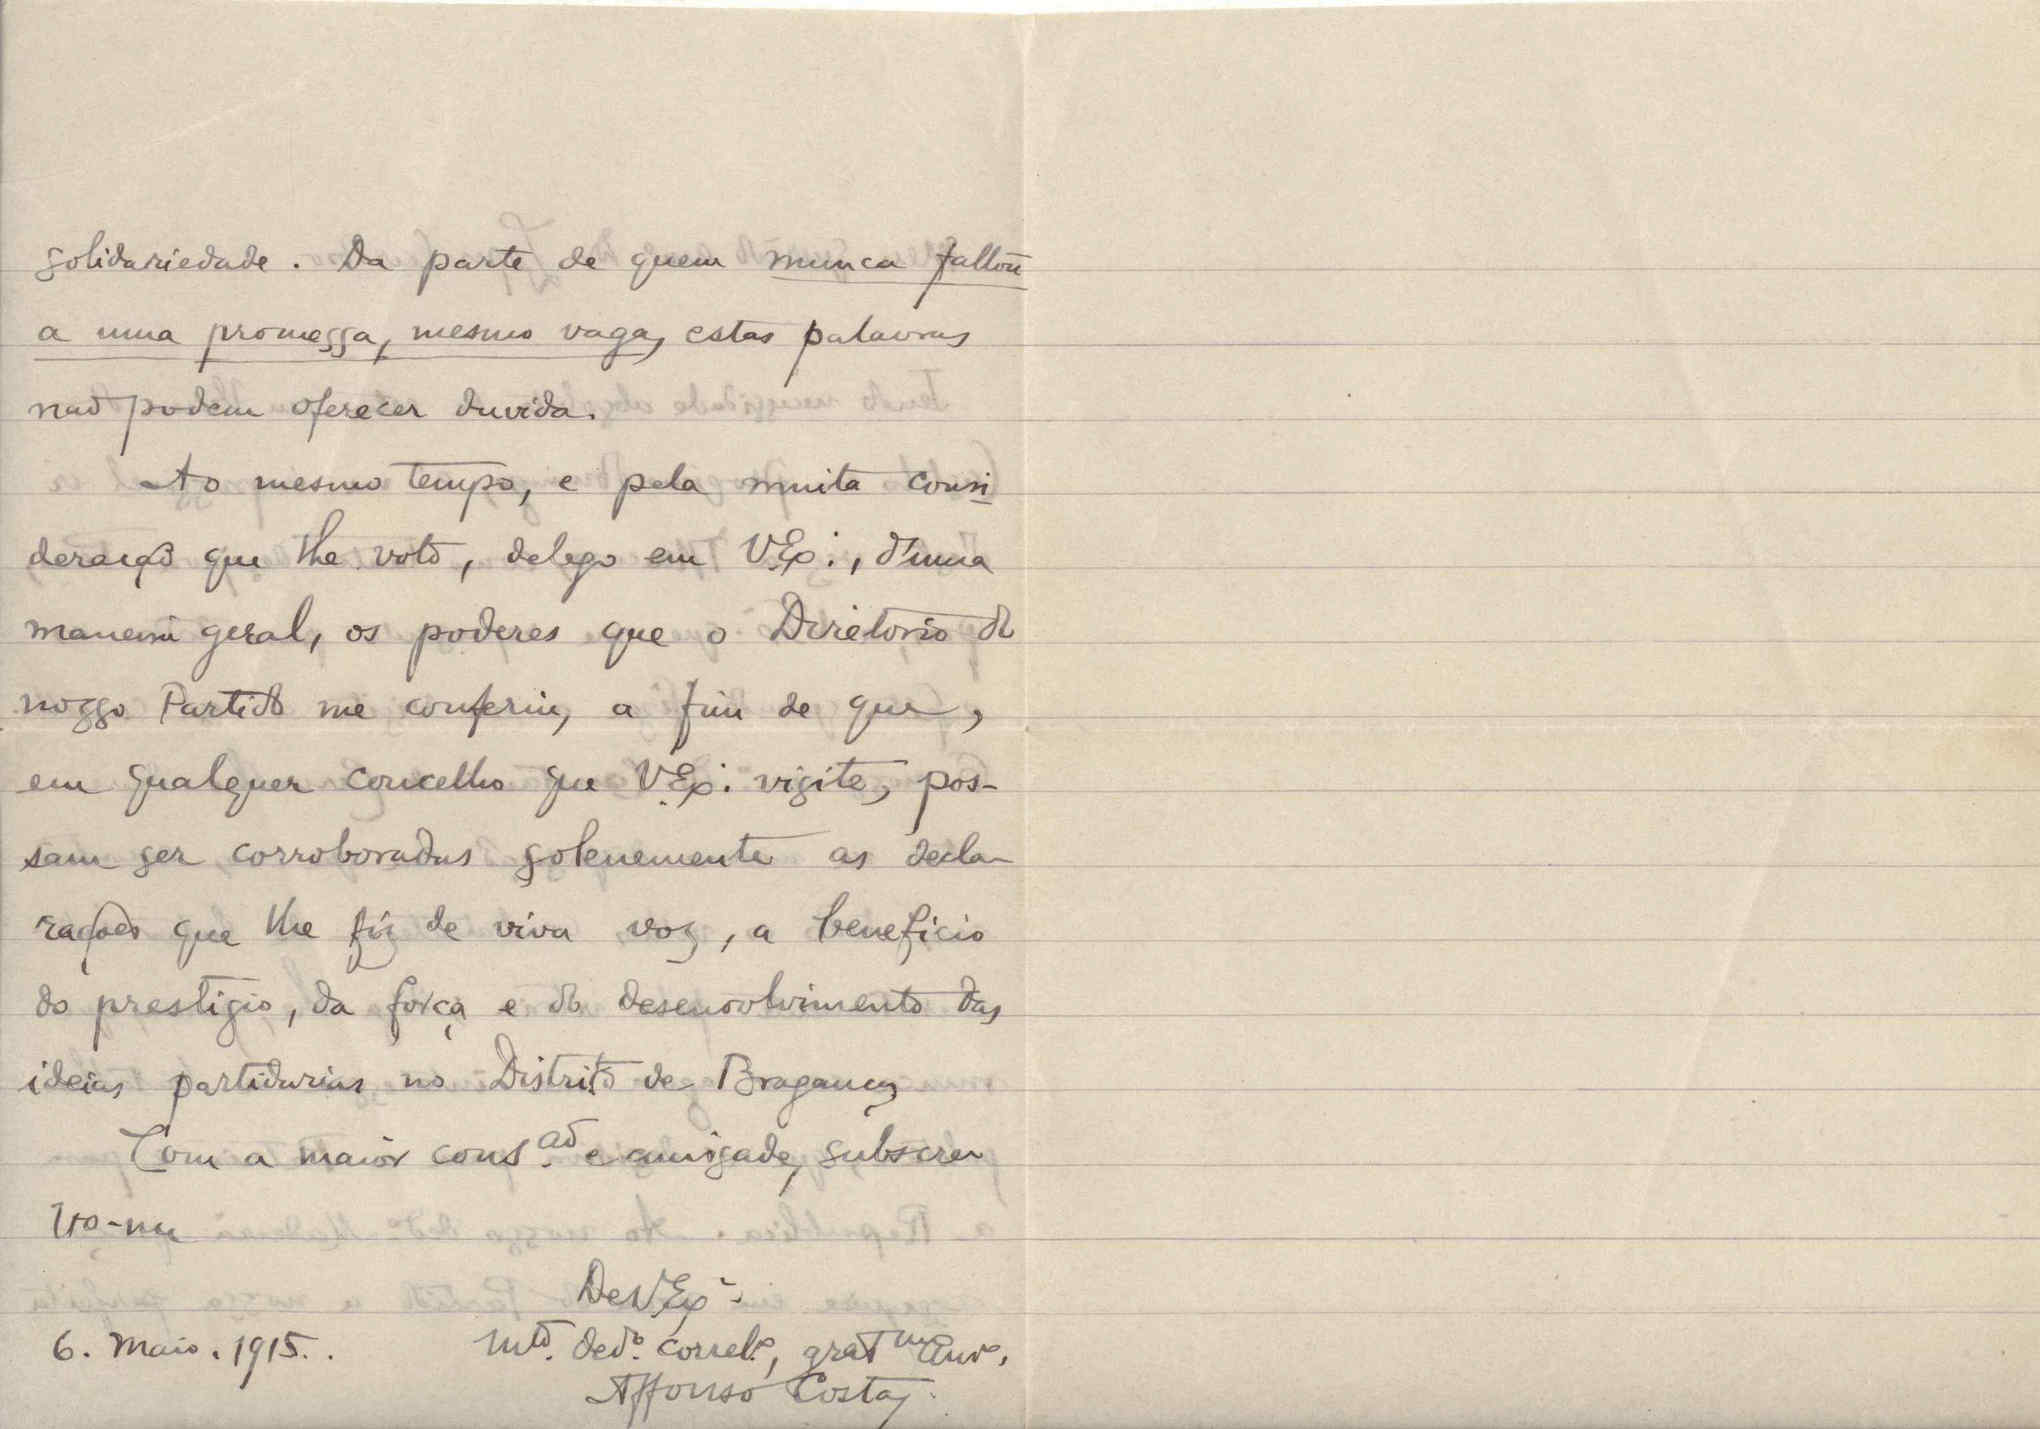 solidariedade. Da parte de quem nunca faltou
a uma promessa, mesmo vaga, estas palavras
não podem oferecer duvida.
Ao mesmo tempo, e pela muita consi
deração que lhe voto, delego em V. Ex.ª, d'uma
maneira geral, os poderes que o Diretorio do
nosso Partido me conferiu, a fim de que,
em qualquer concelho que V. Ex.ª visite, pos-
sam ser corroboradas solenemente as decla-
rações que lhe fiz de viva voz, a beneficio
do prestigio, da força e do desenvolvimento das
ideias partidarias no Distrito de Bragança
Com a maior cons.ão e amisade, subscre
vo-me
De V. Ex.ª
6. Maio. 1915. mto. dedo. correl.o, grat
Affonso Costa